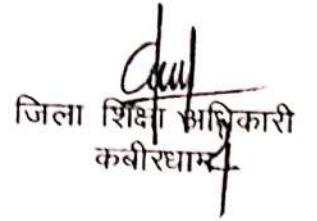 जिला शिक्षा अधिकारी
कबीरधाम